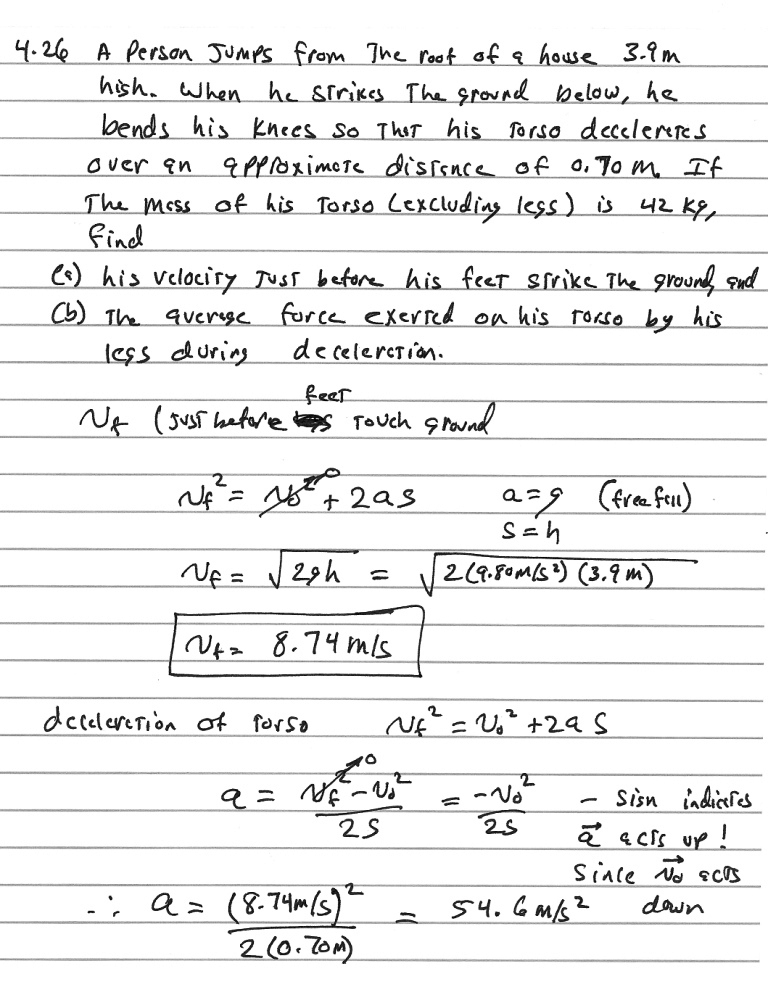 4.26 A Person Jumps from The roof of a house 3.9m
high. When he strikes The ground below, he
bends his knees so That his Torso decelerates
over an approximate distance of 0.70 m. If
The mass of his Torso (excluding legs) is 42 kg,
find
(a) his velocity Just before his feet strike The ground, and
(b) The average force exerted on his Torso by his
legs during deceleration.
feet
Vf (Just before Touch ground
Vf² = V₀²→0 + 2as a=g (free fall)
s=h
Vf = √2gh = √2(9.80m/s²)(3.9m)
Vf = 8.74 m/s
deceleration of Torso Vf² = V₀² + 2a S
a = (Vf²→0 - V₀²)/2S = -V₀²/2S - Sign indicates
a⃗ acts up!
Since V⃗₀ acts
down
∴ a = (8.74m/s)²/2(0.70m) = 54.6 m/s²